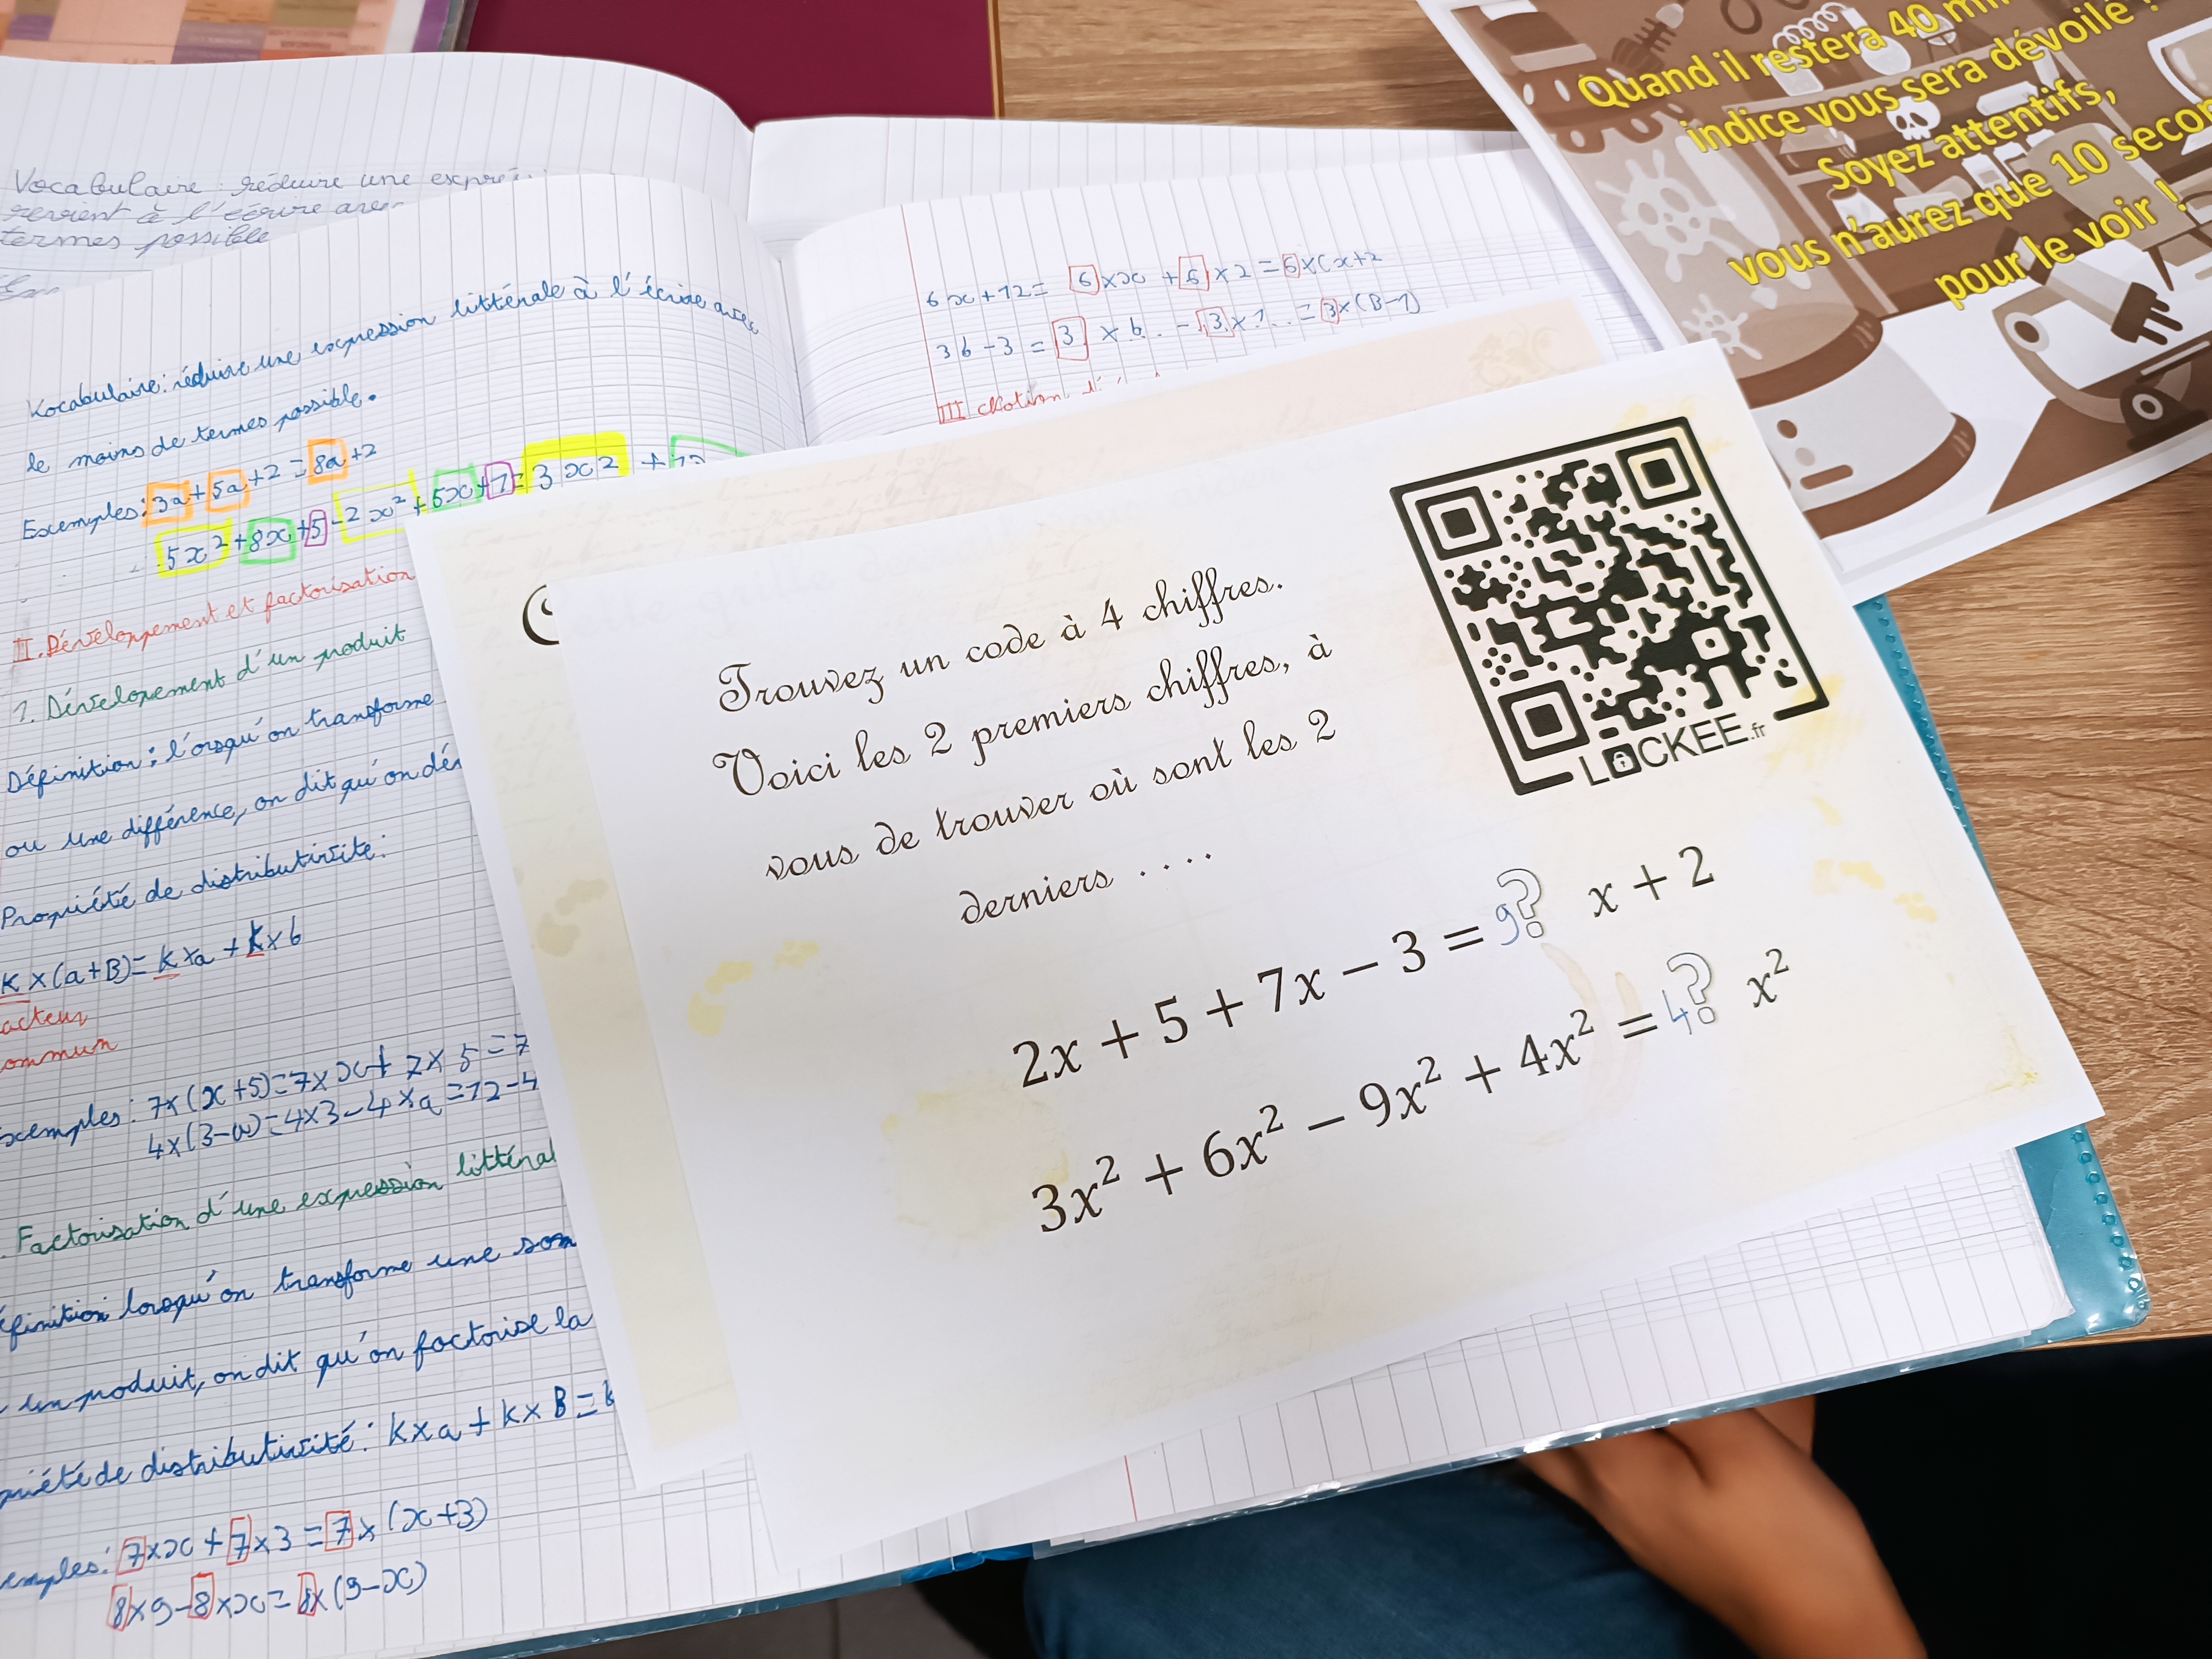 Vocabulaire: réduire une
revient à l'écrire
termes possible
Vocabulaire: réduire une expression litténale à l'écrire avec
le moins de termes possible.
Exemples: 3a+5a+2=8a+2
5x²+8x+5-2x²+5x+1=3x2
II. Développement et factorisation
1. Dévelopement d'un produit
Définition: l'orsqu'on transforme
ou une différence, on dit qu'on
Propriété de distributivite:
k×(a+B)=k×a+k×b
7×(x+5)=7×x+7×5=7
4×(3-a)=4×3-4×a=12-4
Factorisation d'une expression
lorsqu'on transforme une
un produit, on dit qu'on factorise la
de distributivité: k×a+k×B=k
7×x+7×3=7×(x+3)
8×9-8×x=8×(9-x)
6x+12= 6×x+6×2=6×(x+2
3b-3=3×b.-3×1..=3×(B-1)
III
Quand il restera 40
indice vous sera dévoilé !
Soyez attentifs,
vous n'aurez que 10
pour le voir !
Trouvez un code à 4 chiffres.
Voici les 2 premiers chiffres, à
vous de trouver où sont les 2
derniers ....
LOCKEE.fr
2x + 5 + 7x − 3 = 9? x + 2
3x² + 6x² − 9x² + 4x² = 4? x²